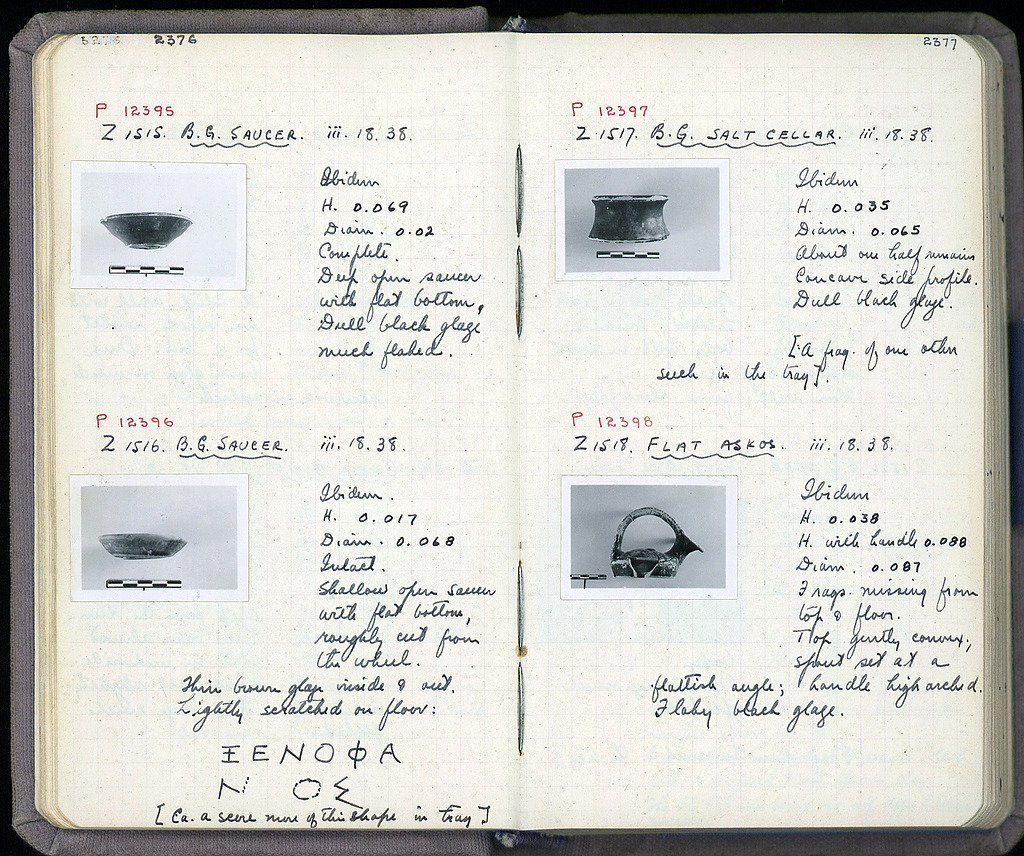 2376
P 12395
Z 1515. B.G. SAUCER. iii. 18. 38.
Ibidem
H. 0.069
Diam. 0.02
Complete.
Deep open saucer
with flat bottom,
Dull black glaze
much flaked.
P 12396
Z 1516. B.G. SAUCER. iii. 18. 38.
Ibidem.
H. 0.017
Diam. 0.068
Intact.
Shallow open saucer
with flat bottom,
roughly cut from
the wheel.
Thin brown glaze inside & out.
Lightly scratched on floor:
ΞΕΝΟΦΑ
Ν ΟΣ
[Ca. a score more of this shape in tray]
2377
P 12397
Z 1517. B.G. SALT CELLAR. iii. 18. 38.
Ibidem
H. 0.035
Diam. 0.065
About one half remains
Concave side profile.
Dull black glaze.
[A frag. of one other
such in the tray].
P 12398
Z 1518. FLAT ASKOS. iii. 18. 38.
Ibidem
H. 0.038
H. with handle 0.088
Diam. 0.087
Frags. missing from
top & floor.
Top gently convex;
spout set at a
flattish angle; handle high arched.
Flaky black glaze.